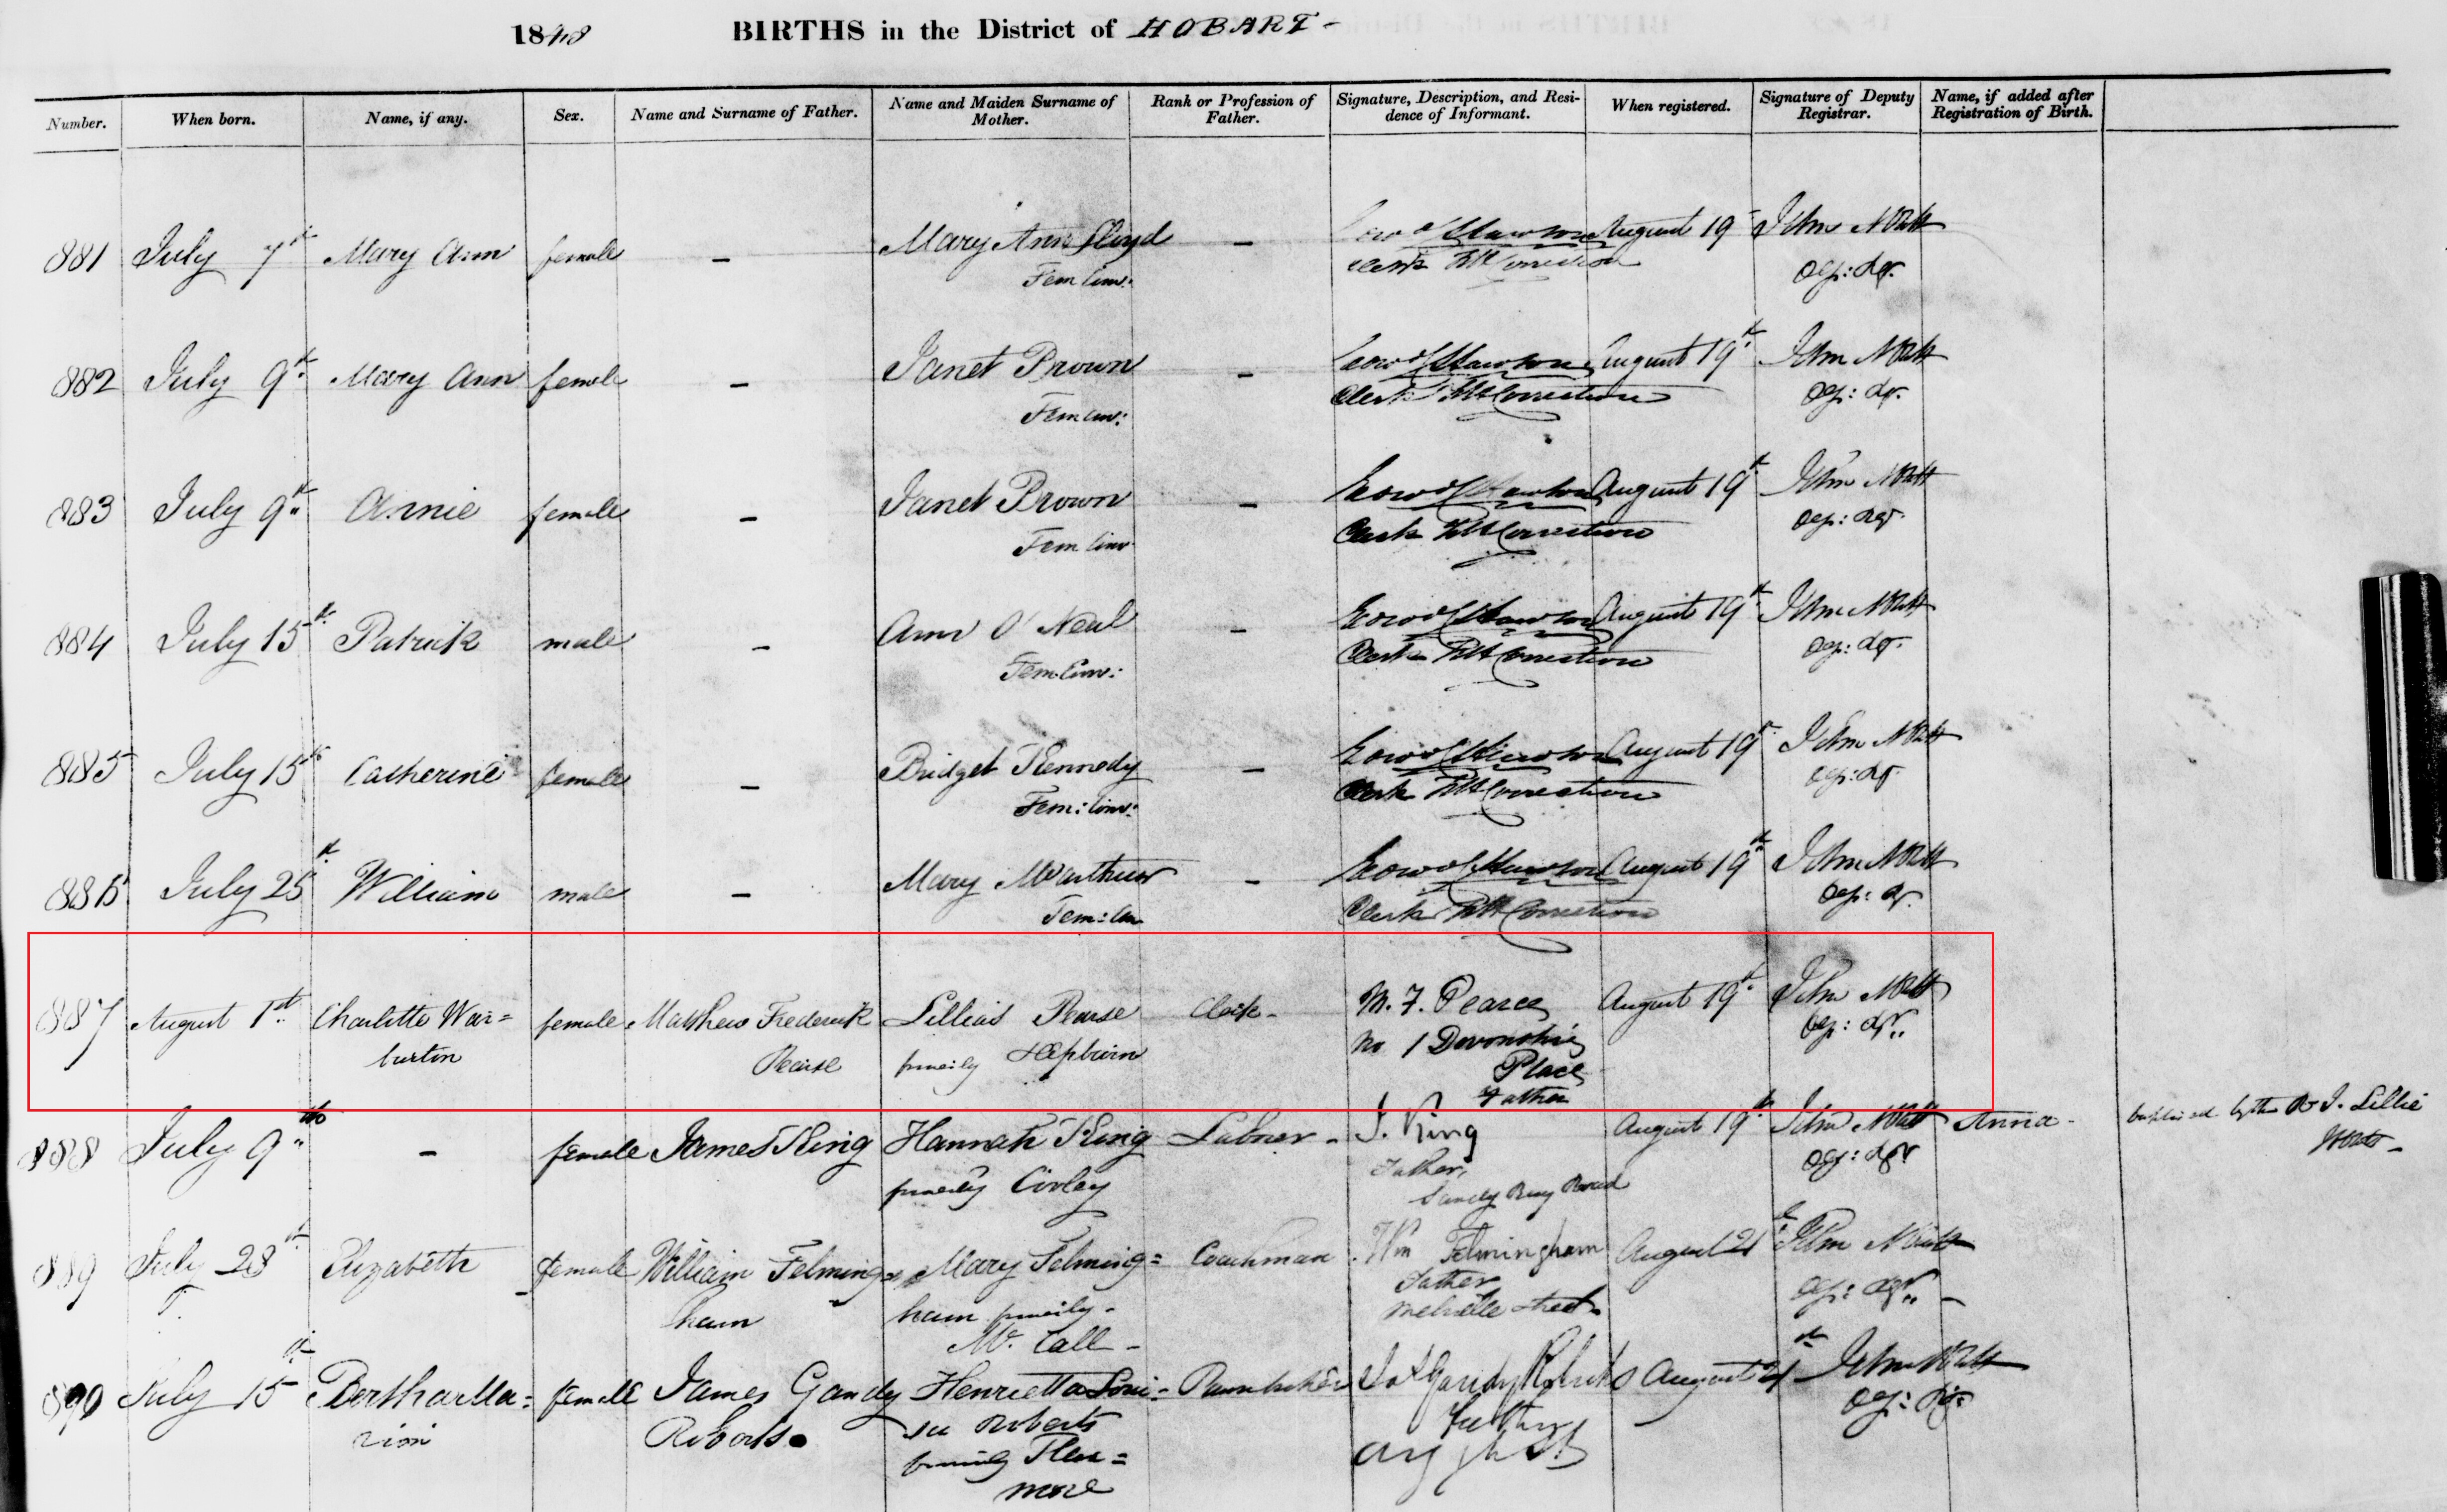 1848 BIRTHS in the District of HOBART -
Number. When born. Name, if any. Sex. Name and Surname of Father. Name and Maiden Surname of Mother. Rank or Profession of Father. Signature, Description, and Residence of Informant. When registered. Signature of Deputy Registrar. Name, if added after Registration of Birth.
881 July 7th Mary Ann female - Mary Ann Lloyd - August 19 John
Fem Conv: Clerk Correction Dep:
882 July 9th Mary Ann female - Janet Brown - August 19th John
Fem Conv: Clerk Correction Dep:
883 July 9th Annie female - Janet Brown - August 19th John
Fem Conv Clerk Correction Dep:
884 July 15th Patrick male - Ann O'Neal - August 19th John
Fem. Conv: Clerk Correction Dep:
885 July 15th Catherine female - Bridget Kennedy - August 19th John
Fem: Conv: Clerk Correction Dep:
886 July 25th William male - Mary McArthur - August 19th John
Fem: Con Clerk Correction Dep:
887 August 1st Charlotte War= female Matthew Frederick Lillias Pearse Clerk - M. F. Pearce August 19th John
burton Pearse formerly Hepburn No 1 Devonshire Dep:
Place
Father
888 July 9th - female James King Hannah King Labourer - J. King August 19th John Anna - baptized by the Rev J. Lillie
formerly Father, Dep:
Sandy Bay Road
889 July 28th Elizabeth female William Felming= Mary Felming= Coachman Wm Felmingham August 21st John
ham ham formerly - Father Dep:
Mc. Call - Melville Street
890 July 15th Bertha Ma= female James Gandy Henrietta Loui= Gandy Roberts August 21st John
Roberts sa Roberts Father Dep:
formerly
more